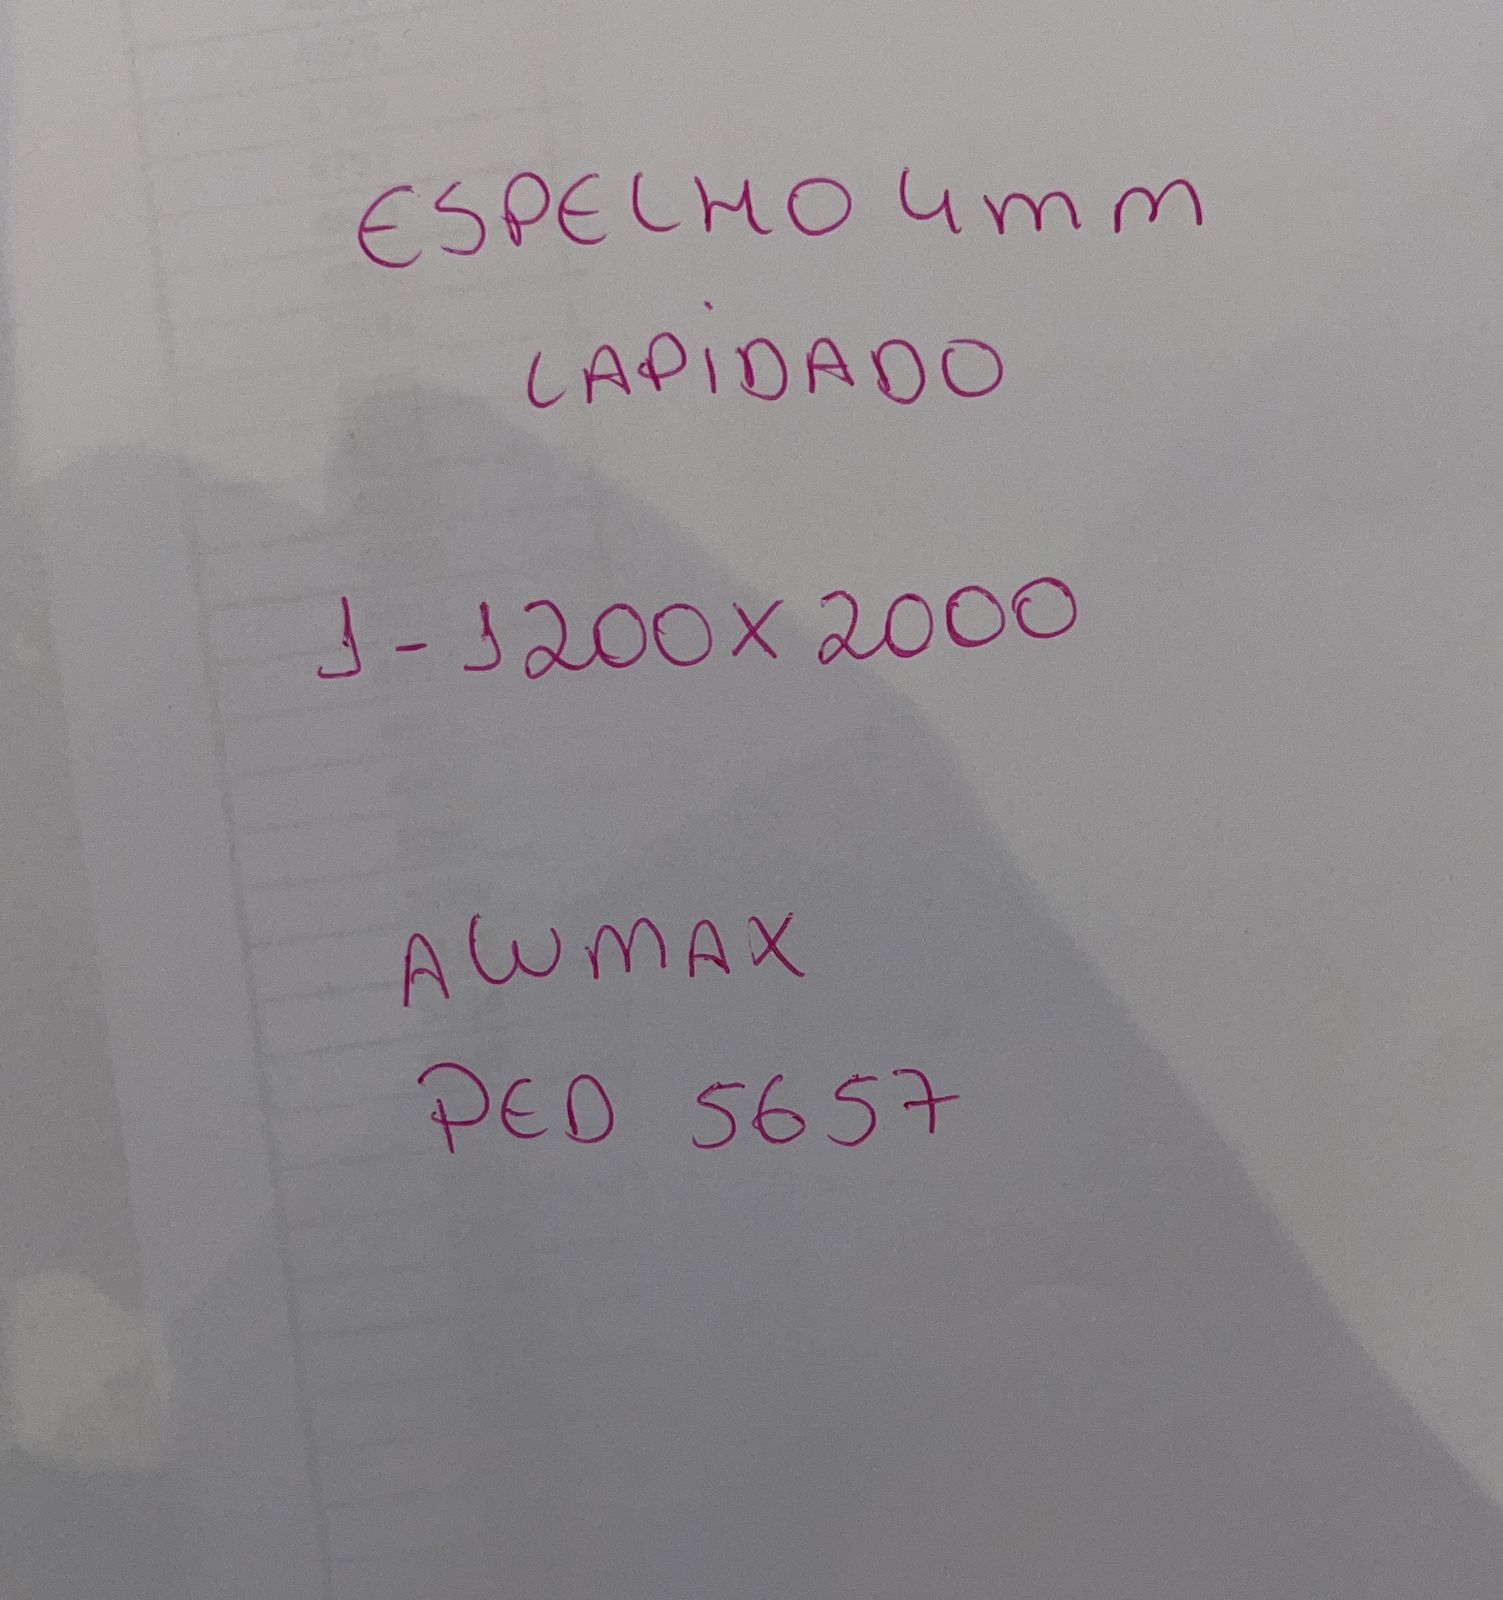 ESPELHO 4mm
LAPIDADO
1-1200x2000
ALUMAX
PED 5657